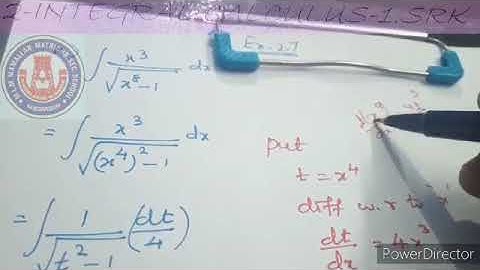 2-INTEGRAL CALCULUS-1.SRK
Ex-2.7
∫ x³/√(x⁸-1) dx
= ∫ x³/√((x⁴)²-1) dx
put
t = x⁴
diff w.r to 'x'
= ∫ 1/√(t²-1) (dt/4)
dt/dx = 4x³
PowerDirector